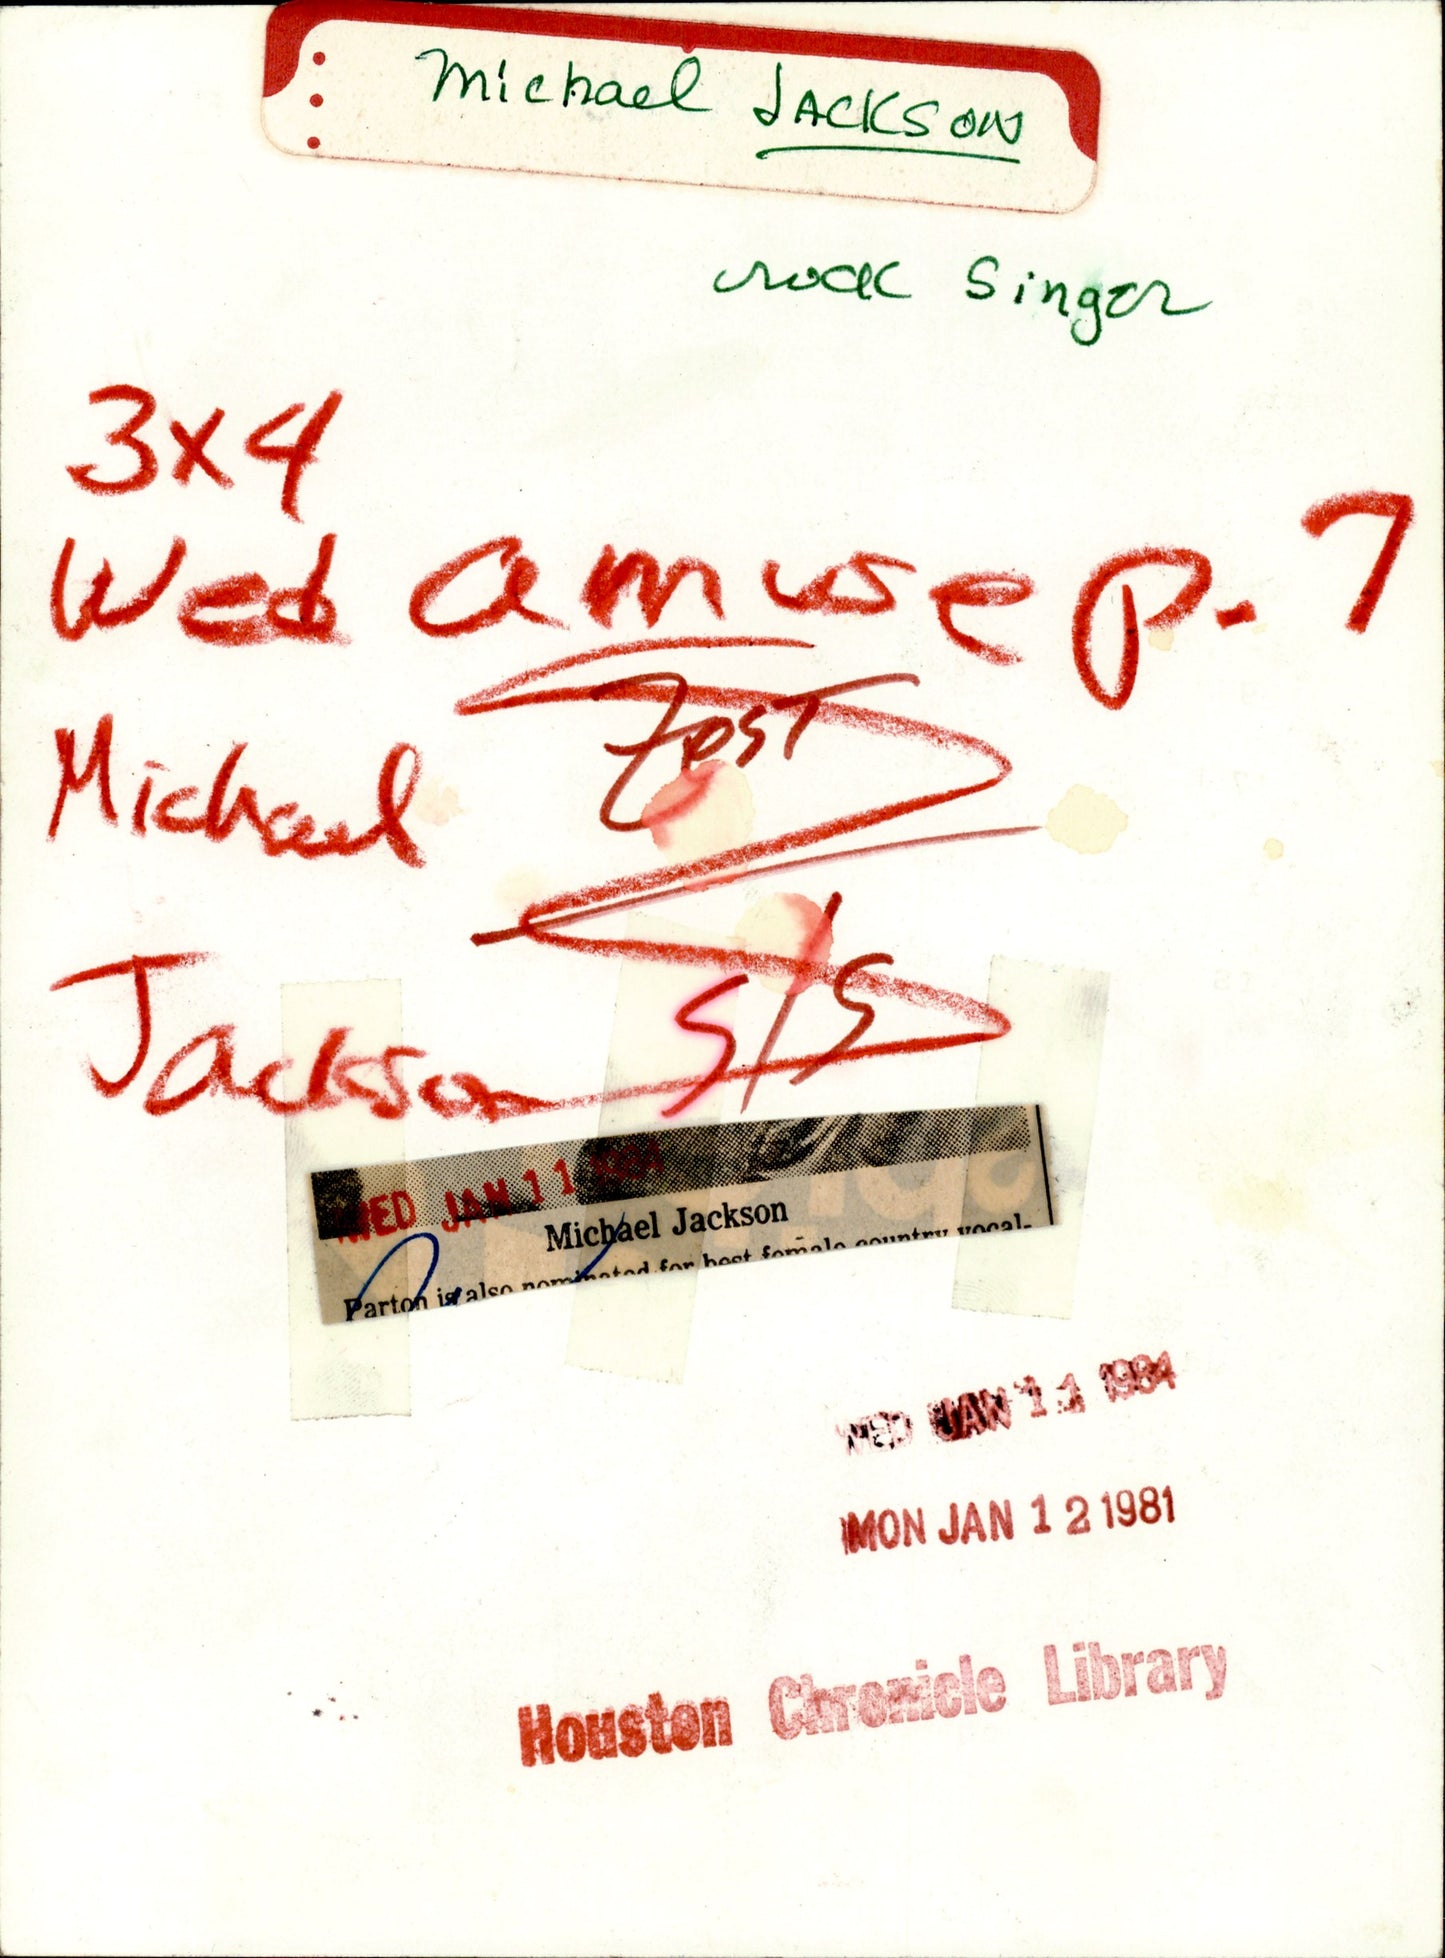 Michael JACKSON
rock singer
3x4
Wed amuse p. 7
Michael
Zest
Jackson
5/5
WED JAN 11 1984
Michael Jackson
Parton is also nominated for best female country vocal-
WED JAN 11 1984
MON JAN 12 1981
Houston Chronicle Library